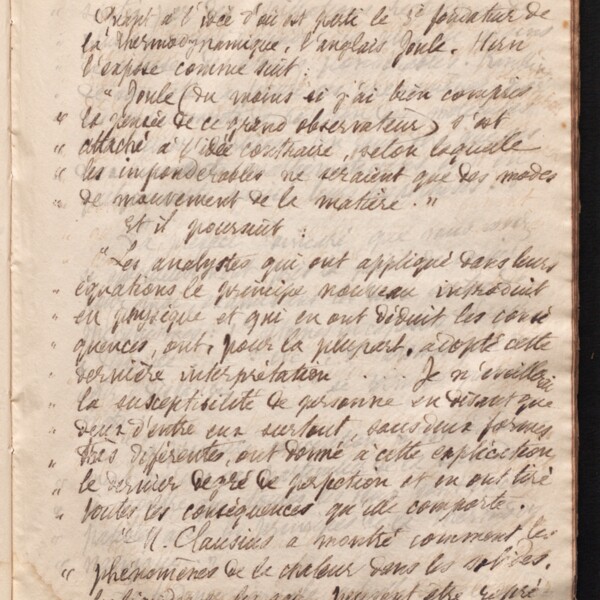 Quant à l'idée d'où est parti le 3e fondateur de
la Thermodynamique, l'anglais Joule, Hirn
l'expose comme suit :
" Joule (du moins si j'ai bien compris
" la pensée de ce grand observateur) s'est
" attaché à l'idée contraire, selon laquelle
" les impondérables ne seraient que des modes
" de mouvement de la matière. "
Et il poursuit :
" Les analystes qui ont appliqué dans leurs
" équations le principe nouveau introduit
" en physique et qui en ont déduit les consé
" quences, ont, pour la plupart, adopté cette
" dernière interprétation .... Je n'éveillerai
" la susceptibilité de personne en disant que
" deux d'entre eux surtout, sous deux formes
" très différentes, ont donné à cette explication
" le dernier degré de perfection et en ont tiré
" toutes les conséquences qu'elle comporte.
" M. Clausius a montré comment les
" phénomènes de la chaleur dans les solides,
les gaz peuvent être repré